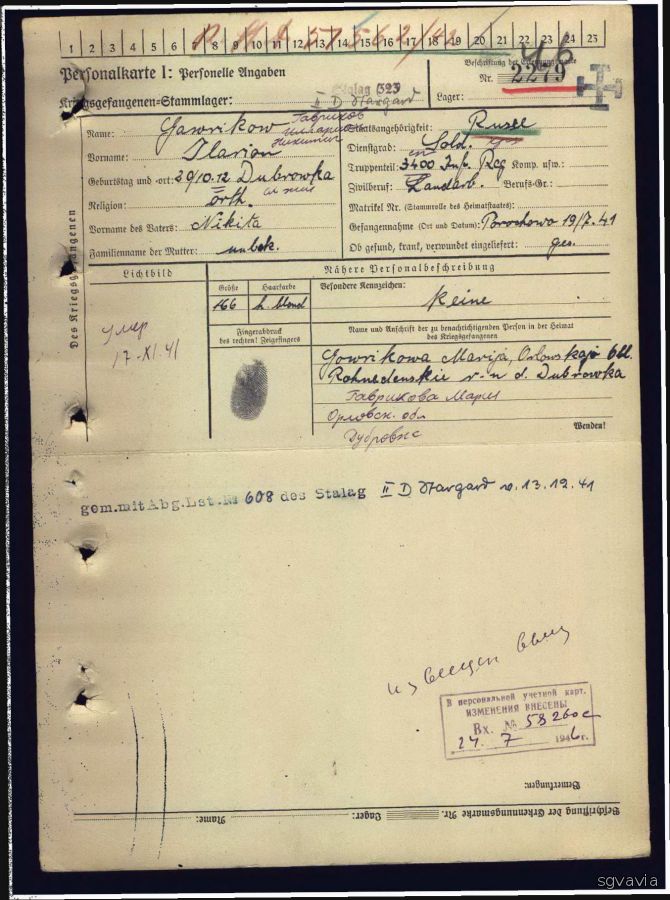 1 2 3 4 5 6 7 8 9 10 11 12 13 14 15 16 17 18 19 20 21 22 23 24 25
Personalkarte I: Personelle Angaben
Beschriftung der Erkennungsmarke
Nr. 2279
Kriegsgefangenen-Stammlager: Stalag 323
II D Stargard
Lager:
Des Kriegsgefangenen
Name: Gawrikow Гавриков
Vorname: Ilarion Илларион Никитич
Geburtstag und -ort: 29/10.12 Dubrowka
Religion: orth.
Vorname des Vaters: Nikita
Familienname der Mutter: unbek.
Staatsangehörigkeit: Russe
Dienstgrad: Sold.
Truppenteil: 3400 Inf. Reg Komp. usw.:
Zivilberuf: Landarb. Berufs-Gr.:
Matrikel Nr. (Stammrolle des Heimatstaates):
Gefangennahme (Ort und Datum): Porochowa 19/7.41
Ob gesund, krank, verwundet eingeliefert: ges.
Lichtbild
Nähere Personalbeschreibung
Größe Haarfarbe
166 h. blond
Besondere Kennzeichen:
Keine
умер
17-XI-41
Fingerabdruck
des rechten! Zeigefingers
Name und Anschrift der zu benachrichtigenden Person in der Heimat
des Kriegsgefangenen
Gowrikowa Marija, Orlowskaja obl.
Rohnedenskie r-n d. Dubrowka
Гаврикова Мария
Орловск. обл
Дубровка
Wenden!
gem.mit Abg.Lst.№ 608 des Stalag II D Stargard v. 13.12.41
извещен
В персональной учетной карт.
ИЗМЕНЕНИЯ ВНЕСЕНЫ
Вх. № 58260с
24. 7 1946г.
Bemerkungen:
Beschriftung der Erkennungsmarke Nr. Lager: Name:
sgvavia